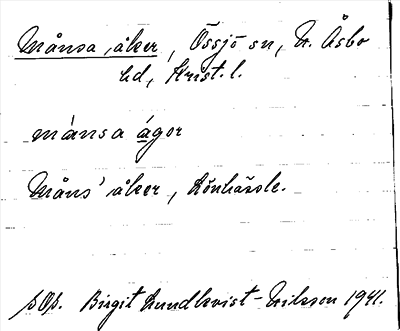 Månsa åker, Össjö sn, N. Åsbo
hd, Krist. l.
månsa ágor
Måns' åker, Lönhässle.
pOp. Birgit Lundkvist-Nilsson 1941.